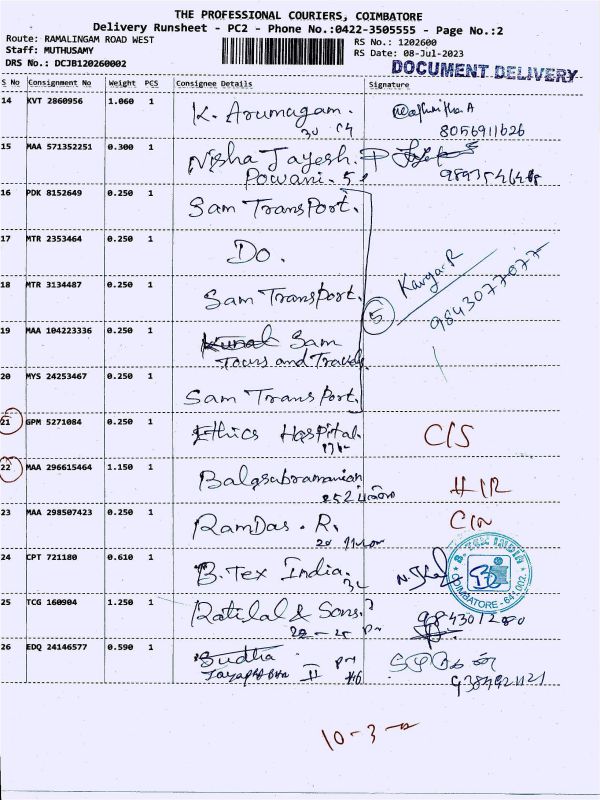 THE PROFESSIONAL COURIERS, COIMBATORE
Delivery Runsheet - PC2 - Phone No.:0422-3505555 - Page No.:2
Route: RAMALINGAM ROAD WEST
RS No.: 1202600
Staff: MUTHUSAMY
RS Date: 08-Jul-2023
DRS No.: DCJB120260002
DOCUMENT DELIVERY
S No Consignment No Weight PCS Consignee Details Signature
14 KVT 2860956 1.060 1 K. Arumugam.
30
8056911626
15 MAA 571352251 0.300 1 Nisha Jayesh. P
Powani.
16 PDK 8152649 0.250 1 Sam Transport.
17 MTR 2353464 0.250 1 Do.
18 MTR 3134487 0.250 1 Sam Transport.
5
Kavya.R
9843077077
19 MAA 104223336 0.250 1 Kunal Sam
Tours and Travels.
20 MYS 24253467 0.250 1 Sam Transport.
21 GPM 5271084 0.250 1 Ethics Hospital. C/S
22 MAA 296615464 1.150 1 Balasubramanian
252
23 MAA 298507423 0.250 1 RamDas. R.
24 CPT 721180 0.610 1 B.Tex India.
B. TEX INDIA
COIMBATORE - 641 002.
25 TCG 160904 1.250 1 Ratilal & Sons.
26 EDQ 24146577 0.590 1 Sudha
10-3-